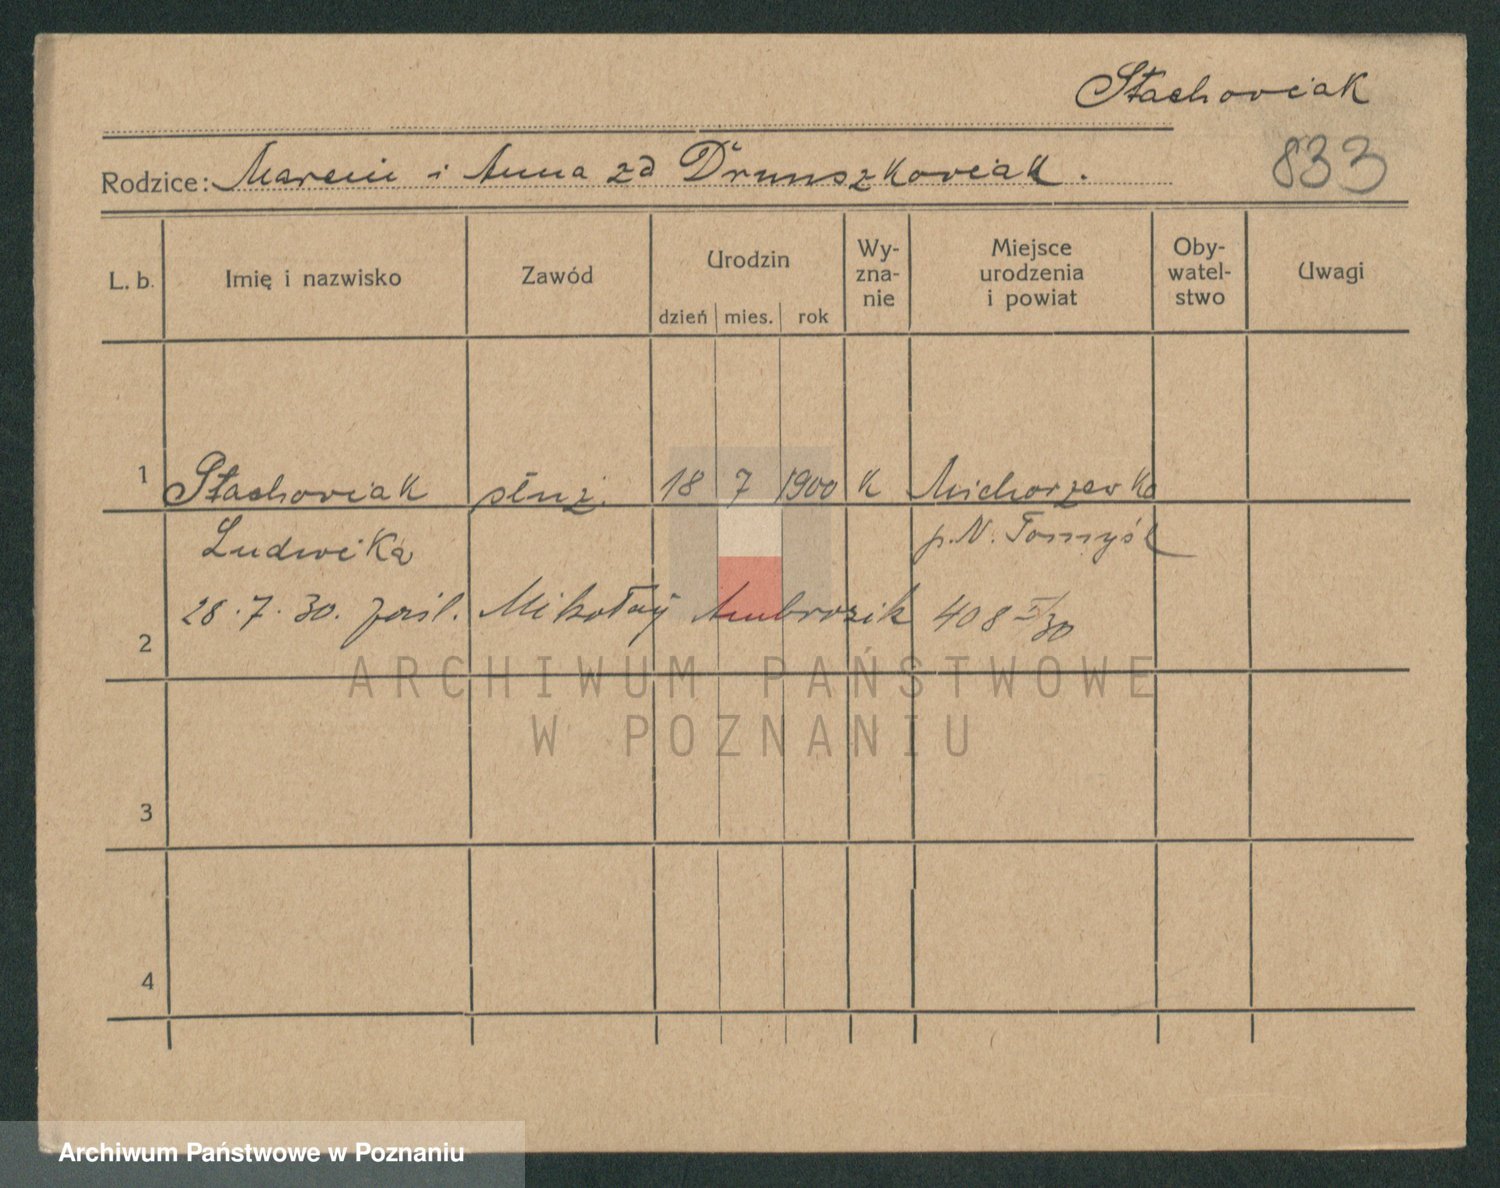 Stachowiak
Rodzice: Marcin i Anna zd Druszkowiak.
833
L. b. Imię i nazwisko Zawód Urodzin Wy-zna-nie Miejsce urodzenia i powiat Oby-watel-stwo Uwagi
dzień mies. rok
1 Stachowiak służ. 18 7 1900 k Michorzewko
Ludwika p. N. Tomyśl
28.7.30. zaśl. Mikołaj Ambrozik 408 /30
2
3
4
ARCHIWUM PAŃSTWOWE
W POZNANIU
Archiwum Państwowe w Poznaniu